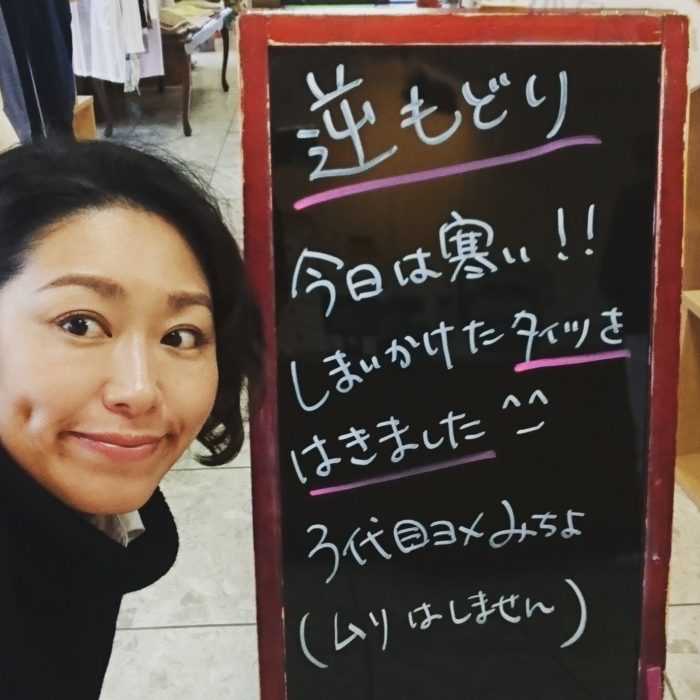 逆もどり
今日は寒い!!
しまいかけたタイツを
はきました^^
3代目ヨメみちよ
(ムリはしません)